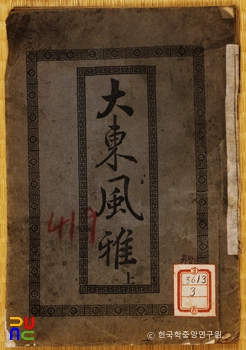 大東風雅
上
419
3613
3
© 한국학중앙연구원